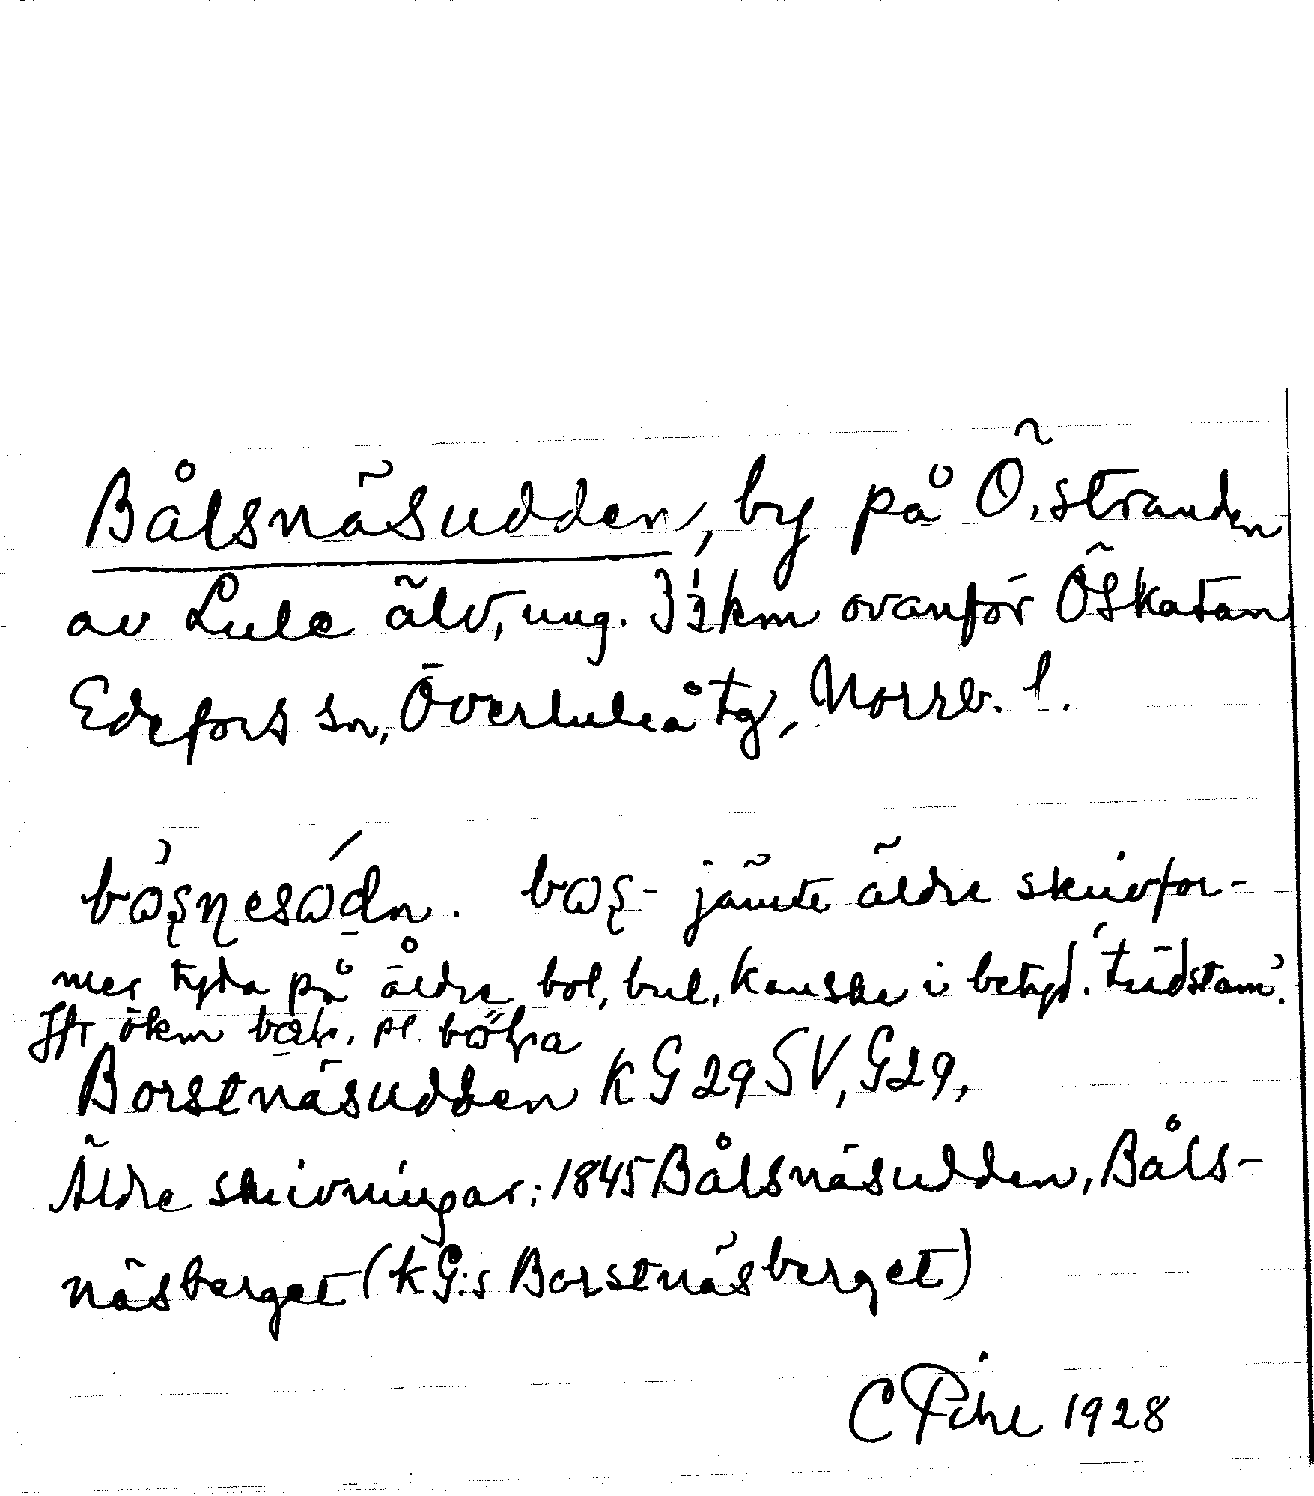 Bålsnäsudden, by på Ö. stranden
av Lule älv, ung. 3½ km ovanför Öskatan
Edefors sn, Överluleå tg, Norrb. l.
bo̊ʂɳesödn. boʂ- jämte äldre skrivfor-
mer tyda på äldre bol, bul, kanske i betyd. 'trädstam'.
Jfr ökn pl.
Borstnäsudden KG 29 SV, G29,
Äldre skrivningar: 1845 Bålsnäsudden, Båls-
näsberget (KG:s Borstnäsberget)
C Pihl 1928